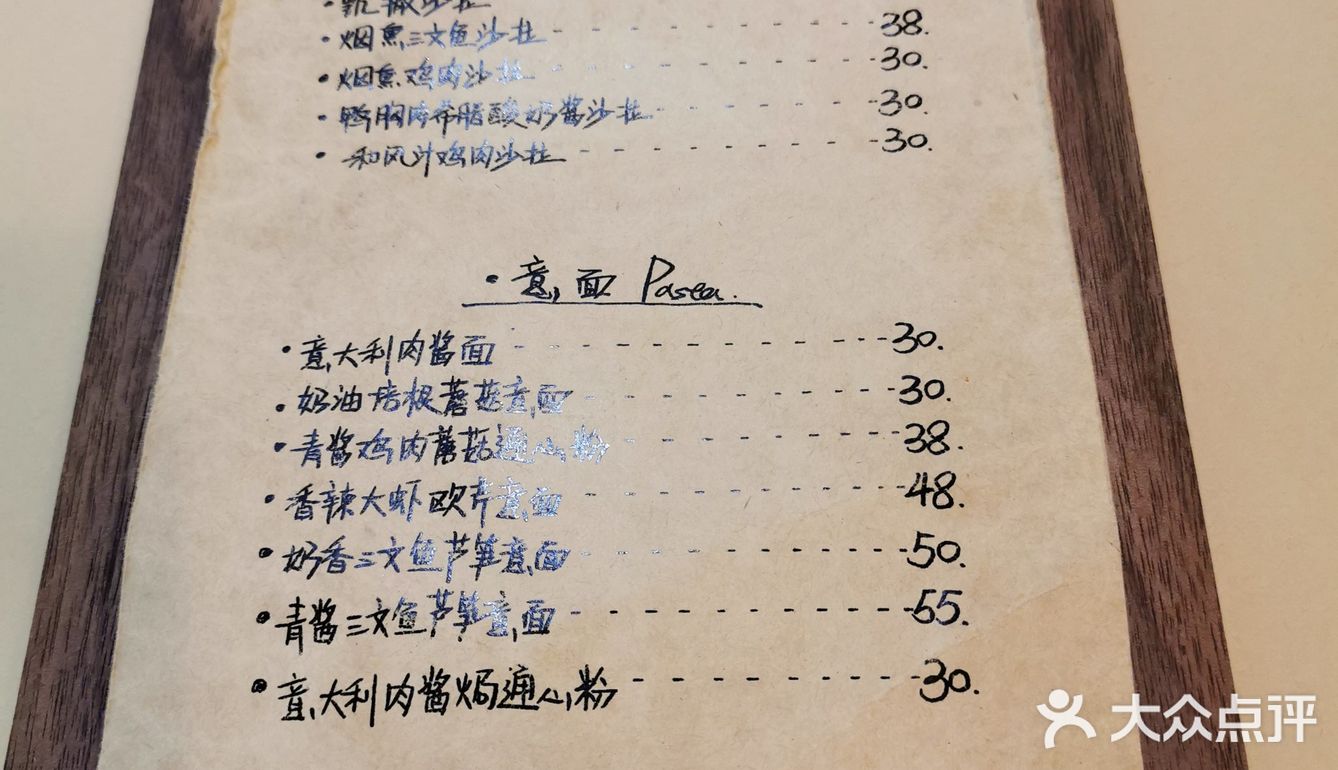 凯撒沙拉
·烟熏三文鱼沙拉 38.
·烟熏鸡肉沙拉 30.
·鸭胸肉希腊酸奶酱沙拉 30.
·和风汁鸡肉沙拉 30.
·意面 Pasea.
·意大利肉酱面 30.
·奶油培根蘑菇意面 30.
·青酱鸡肉蘑菇通心粉 38.
·香辣大虾欧芹意面 48.
·奶香三文鱼芦笋意面 50.
·青酱三文鱼芦笋意面 55.
·意大利肉酱焗通心粉 30.
大众点评